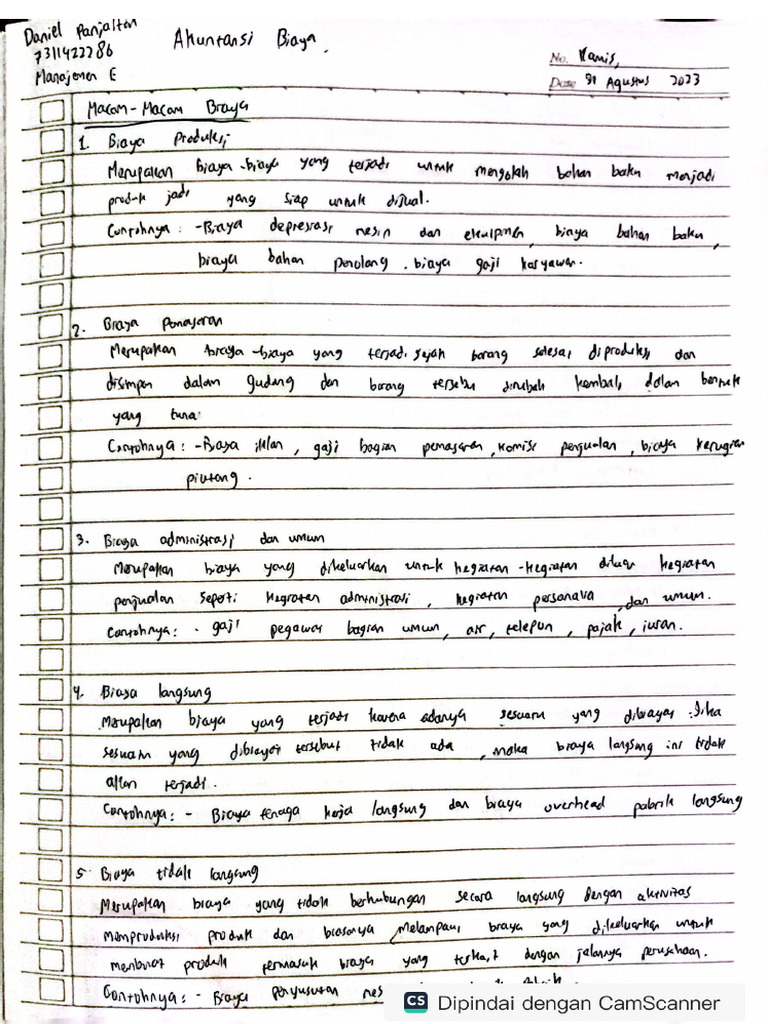 Daniel Panjaitan
7311422286
Manajemen E
Akuntansi Biaya.
No. Kamis,
Date 31 Agustus 2023
Macam-Macam Biaya
1. Biaya Produksi
Merupakan biaya-biaya yang terjadi untuk mengolah bahan baku menjadi
produk jadi yang siap untuk dijual.
Contohnya : - Biaya depresiasi mesin dan ekuipmen, biaya bahan baku,
biaya bahan penolong, biaya gaji karyawan.
2. Biaya Pemasaran
Merupakan biaya-biaya yang terjadi sejak barang selesai diproduksi dan
disimpan dalam gudang dan barang tersebut dirubah kembali dalam bentuk
yang tunai
Contohnya : - Biaya iklan, gaji bagian pemasaran, komisi penjualan, biaya kerugian
piutang.
3. Biaya administrasi dan umum
Merupakan biaya yang dikeluarkan untuk kegiatan-kegiatan diluar kegiatan
penjualan seperti kegiatan administrasi, kegiatan personalia, dan umum.
Contohnya : - gaji pegawai bagian umum, air, telepun, pajak, iuran.
4. Biaya langsung
Merupakan biaya yang terjadi karena adanya sesuatu yang dibiayai. Jika
sesuatu yang dibiayai tersebut tidak ada, maka biaya langsung ini tidak
akan terjadi.
Contohnya : - Biaya tenaga kerja langsung dan biaya overhead pabrik langsung
5. Biaya tidak langsung
Merupakan biaya yang tidak berhubungan secara langsung dengan aktivitas
memproduksi produk dan biasanya melampaui biaya yang dikeluarkan untuk
membuat produk termasuk biaya yang terkait dengan jalannya perusahaan.
Contohnya : - Biaya penyusutan
CS Dipindai dengan CamScanner